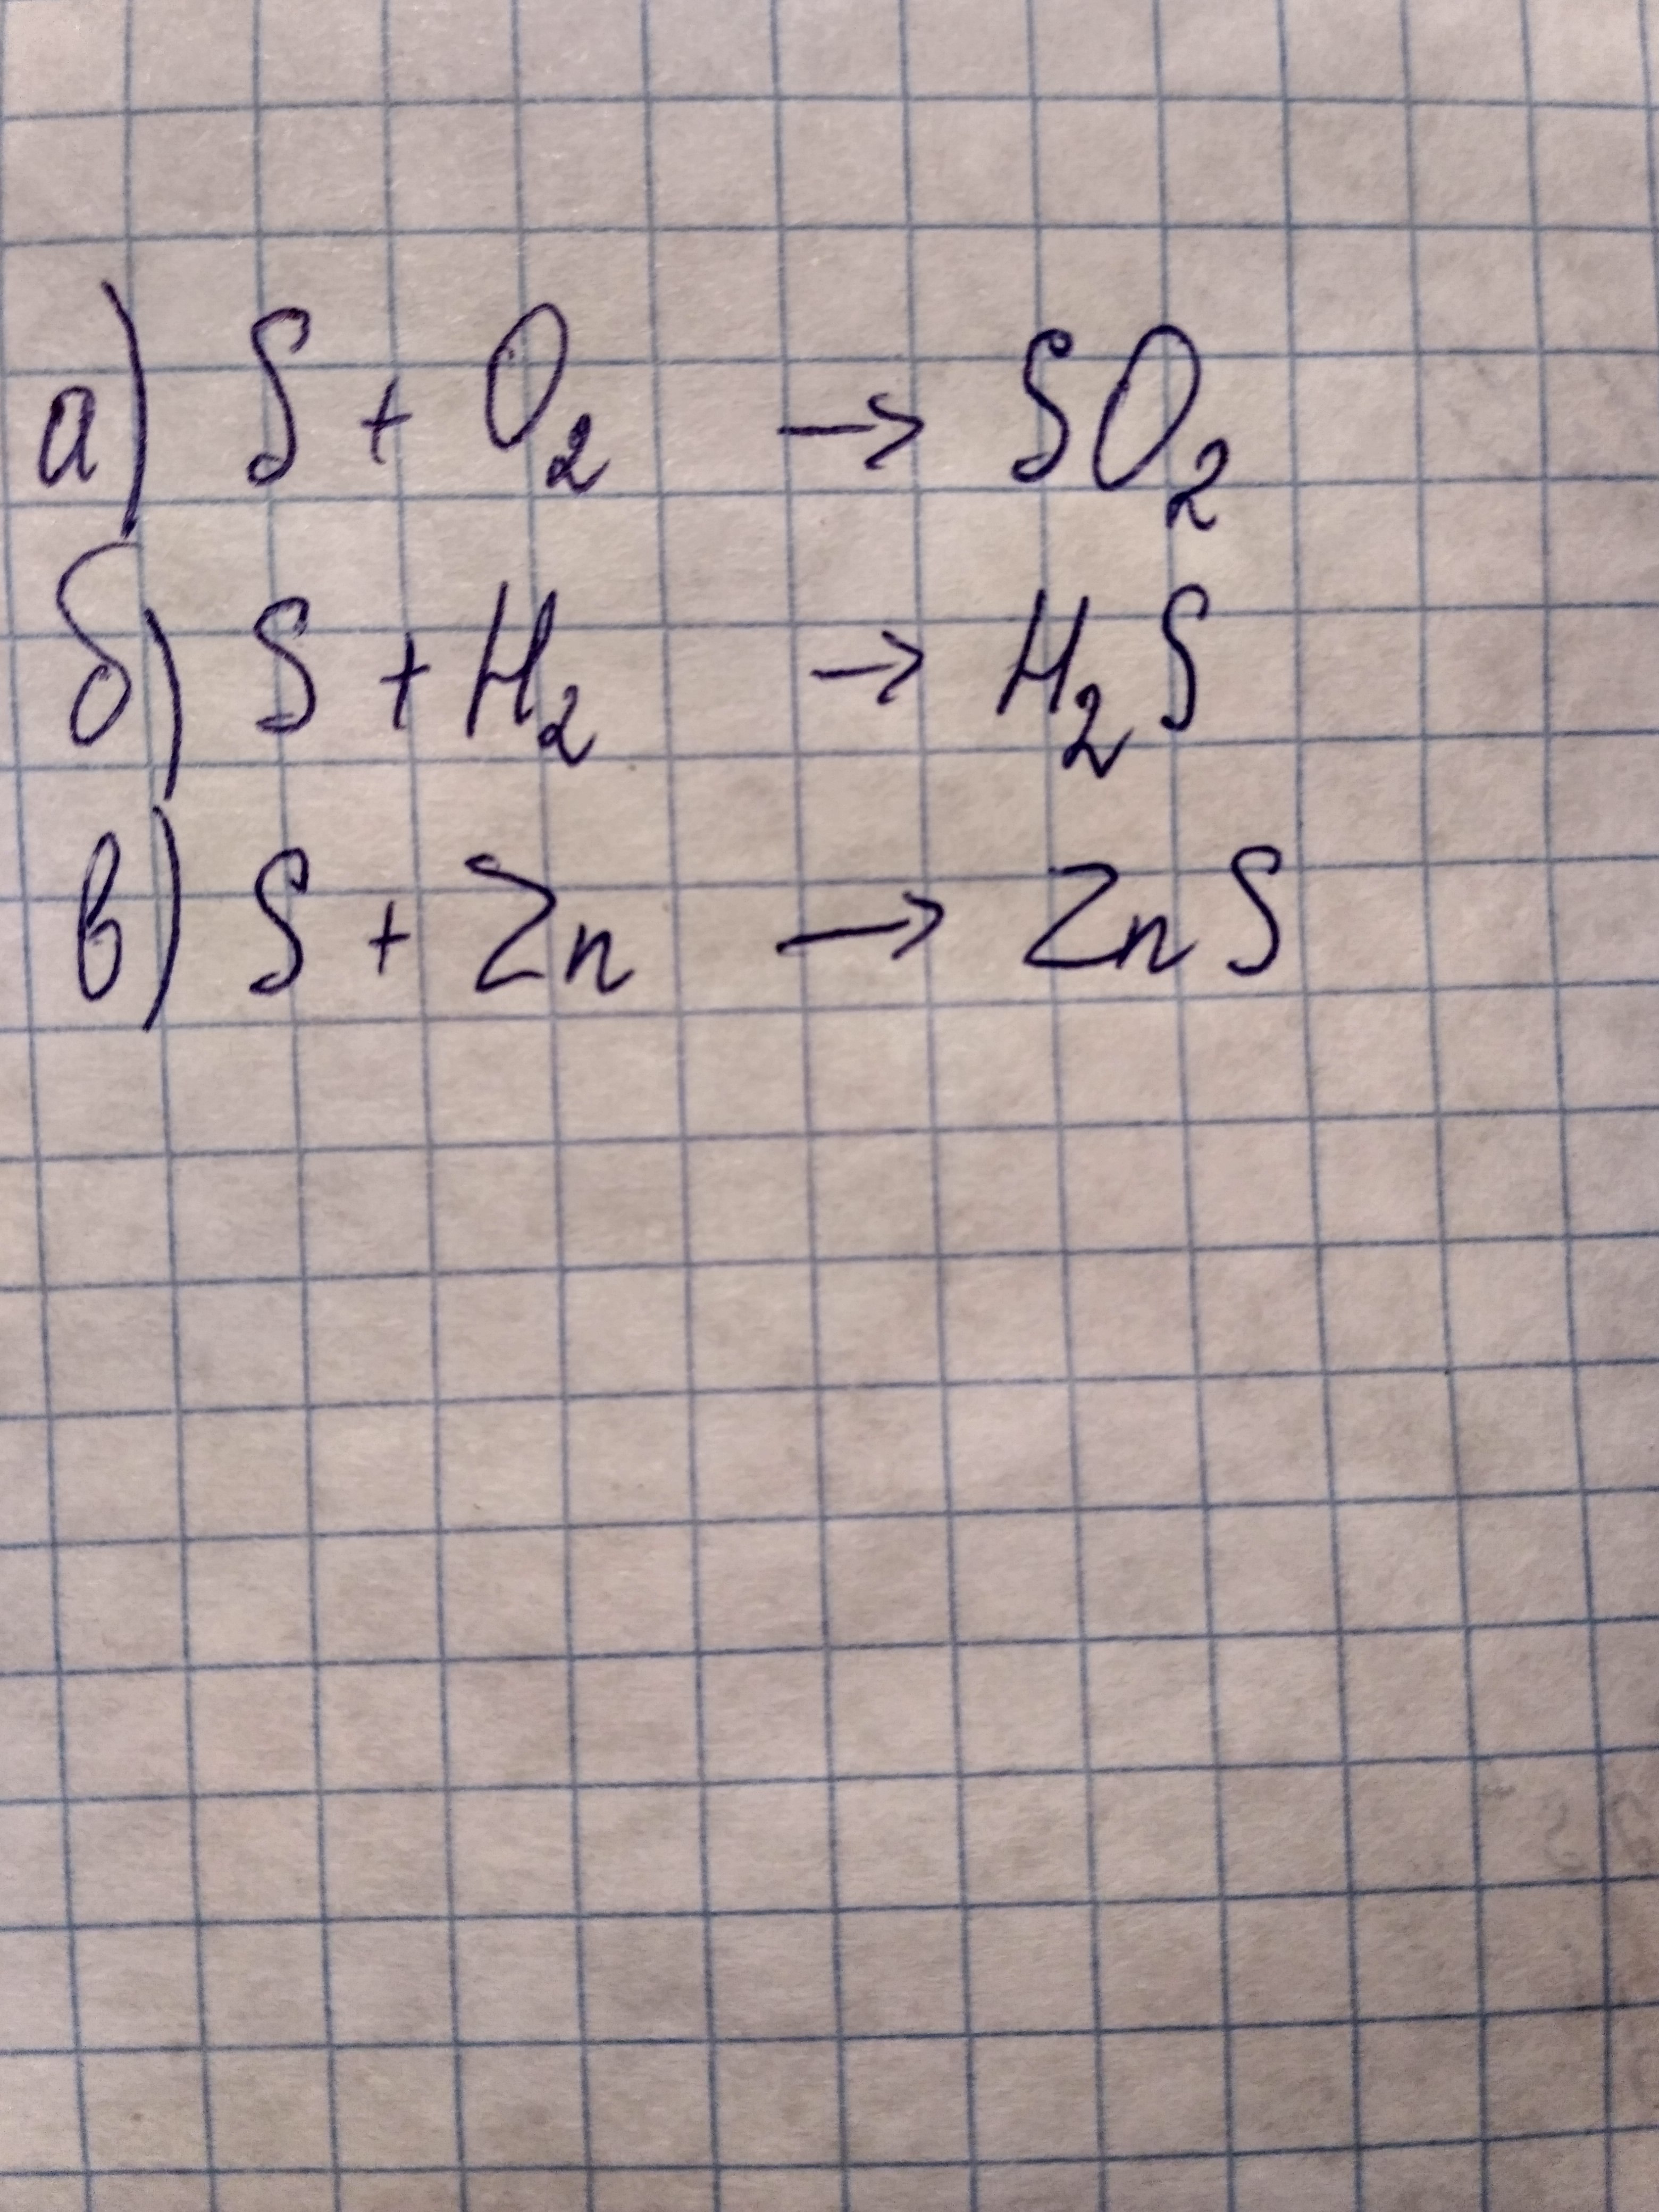 а) S + O₂ → SO₂
б) S + H₂ → H₂S
в) S + Zn → ZnS